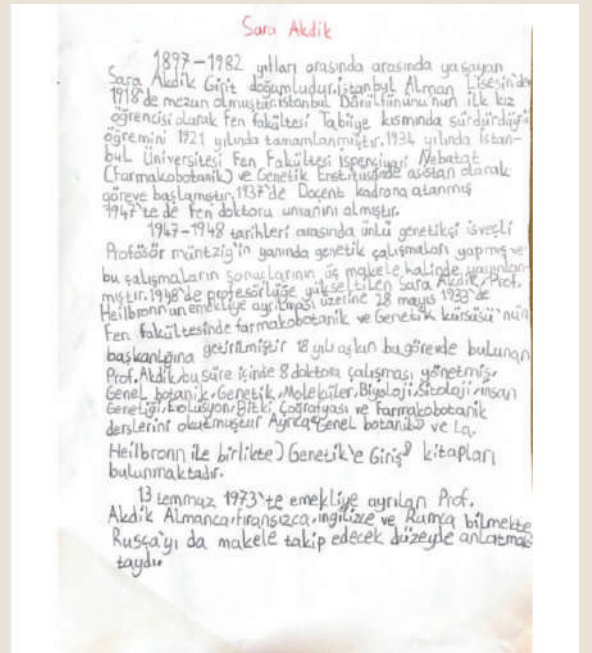 Sara Akdik
1897-1982 yılları arasında arasında yaşayan
Sara Akdik Girit doğumludur.istanbul Alman Lisesin'de
1918'de mezun olmuştur.istanbul Dârülfünunu'nun ilk kız
öğrencisi olarak Fen Fakültesi Tabiiye kısmında sürdürdüğü
öğremini 1921 yılında tamamlanmıştır.1934 yılında İstan-
bul Üniversitesi Fen Fakültesi ispençiyari Nebatat
(Farmakobotanik) ve Genetik Enstitüsünde asistan olarak
göreve başlamıştır.1937'de Docent kadrona atanmış
1947'te de Fen doktoru unvanını almıştır.
1947-1948 tarihleri arasında ünlü genetikçi isveçli
Profösör müntzig'in yanında genetik çalışmaları yapmış ve
bu çalışmaların sonuçlarının üç makele halinde yayınlan-
mıştır.1948'de profesörlüğe yükseltilen Sara Akdik, Prof.
Heilbronn'un emekliye ayrılması üzerine 28 mayıs 1933'de
Fen fakültesinde farmakobotanik ve Genetik kürsüsü'nün
başkanlığına getirilmiştir 18 yılı aşkın bu görevde bulunan
Prof.Akdik,bu süre içinde 8 doktora çalışması yönetmiş,
Genel botanik,Genetik,Moleküler,Biyoloji,Sitoloji,insan
Genetiği,Evolüsyon,Bitki Coğrafyası ve Farmakobotanik
derslerini okutmuştur Ayrıca Genel botanik) ve La,
Heilbronn ile birlikte) Genetik'e Giriş kitapları
bulunmaktadır.
13 temmuz 1973'te emekliye ayrılan Prof.
Akdik Almanca,Fıransızca,ingilizce ve Rumca bilmekte
Rusça'yı da makele takip edecek düzeyle anlatmak
taydı.